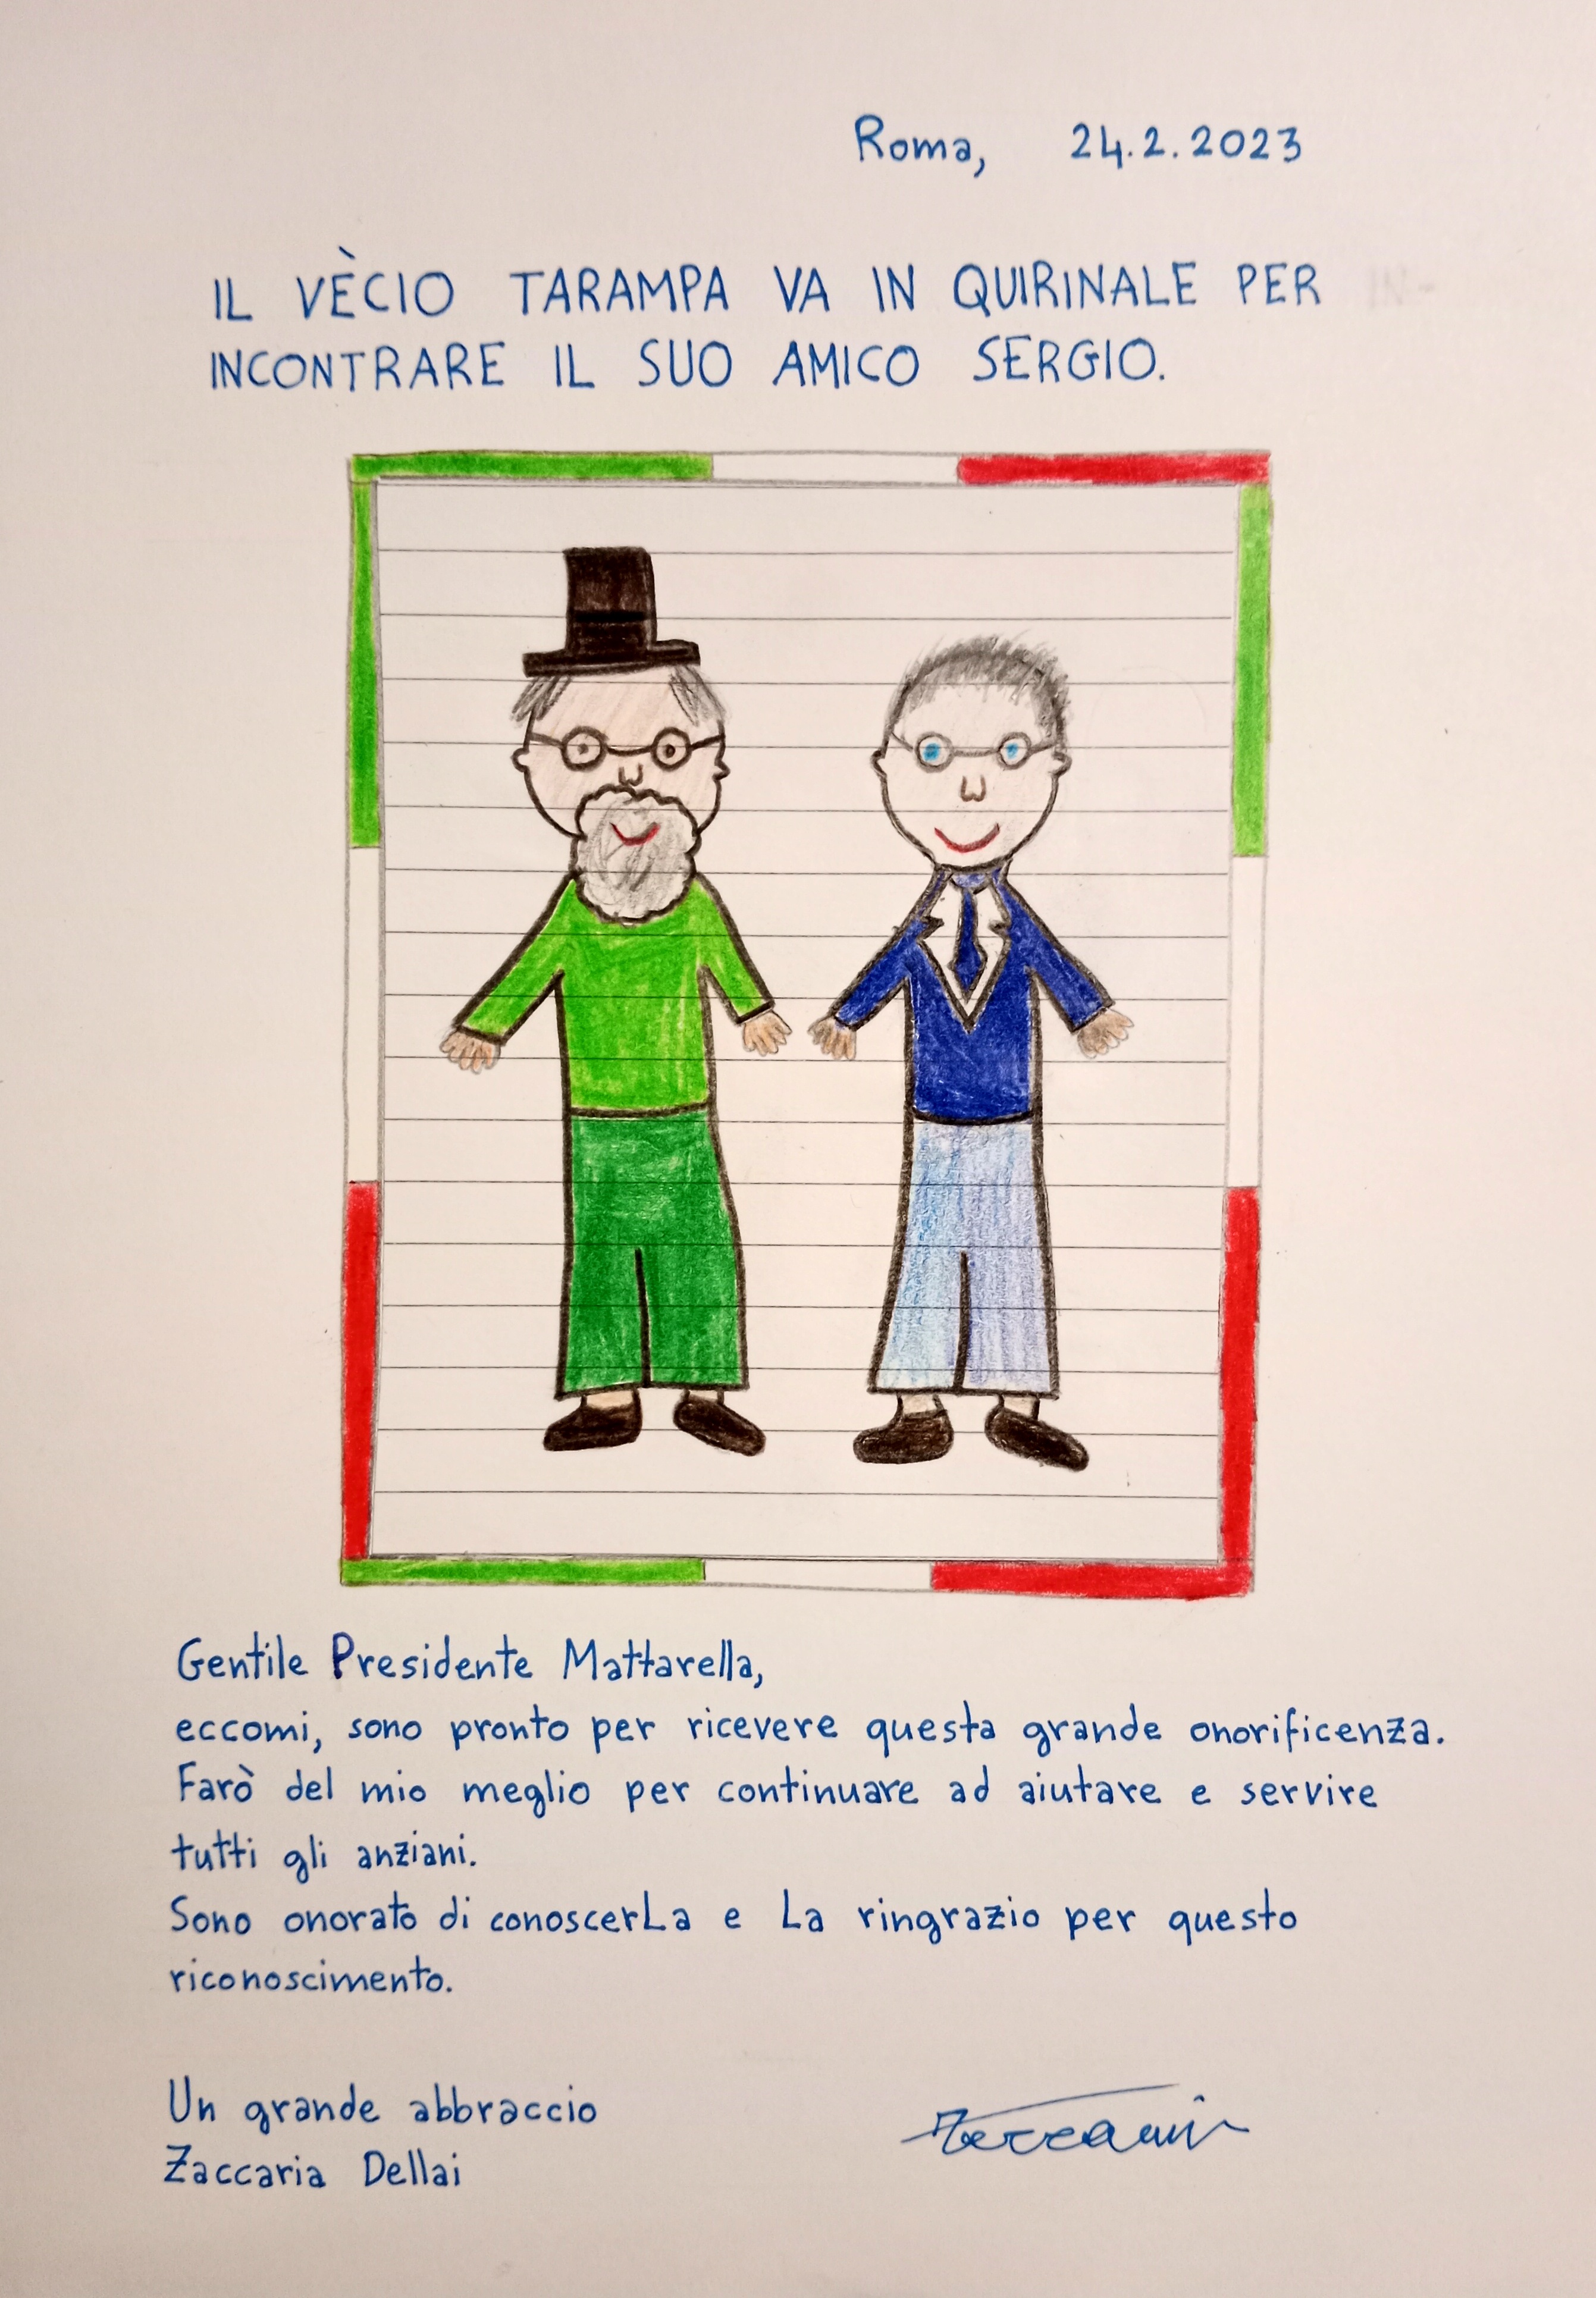 Roma, 24.2.2023
IL VÈCIO TARAMPA VA IN QUIRINALE PER
INCONTRARE IL SUO AMICO SERGIO.
Gentile Presidente Mattarella,
eccomi, sono pronto per ricevere questa grande onorificenza.
Farò del mio meglio per continuare ad aiutare e servire
tutti gli anziani.
Sono onorato di conoscerLa e La ringrazio per questo
riconoscimento.
Un grande abbraccio
Zaccaria Dellai